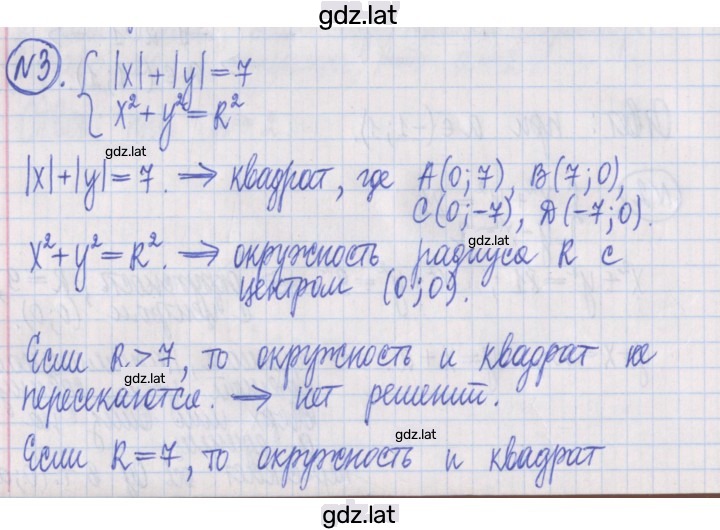 gdz.lat
N3. { |x|+|y|=7
x²+y²=R²
gdz.lat
|x|+|y|=7. ⇒ квадрат, где A(0;7), B(7;0),
C(0;-7), D(-7;0).
gdz.lat
x²+y²=R². ⇒ окружность радиуса R с
центром (0;0).
gdz.lat
Если R>7, то окружность и квадрат не
gdz.lat
пересекаются. ⇒ нет решений.
gdz.lat
Если R=7, то окружность и квадрат
gdz.lat